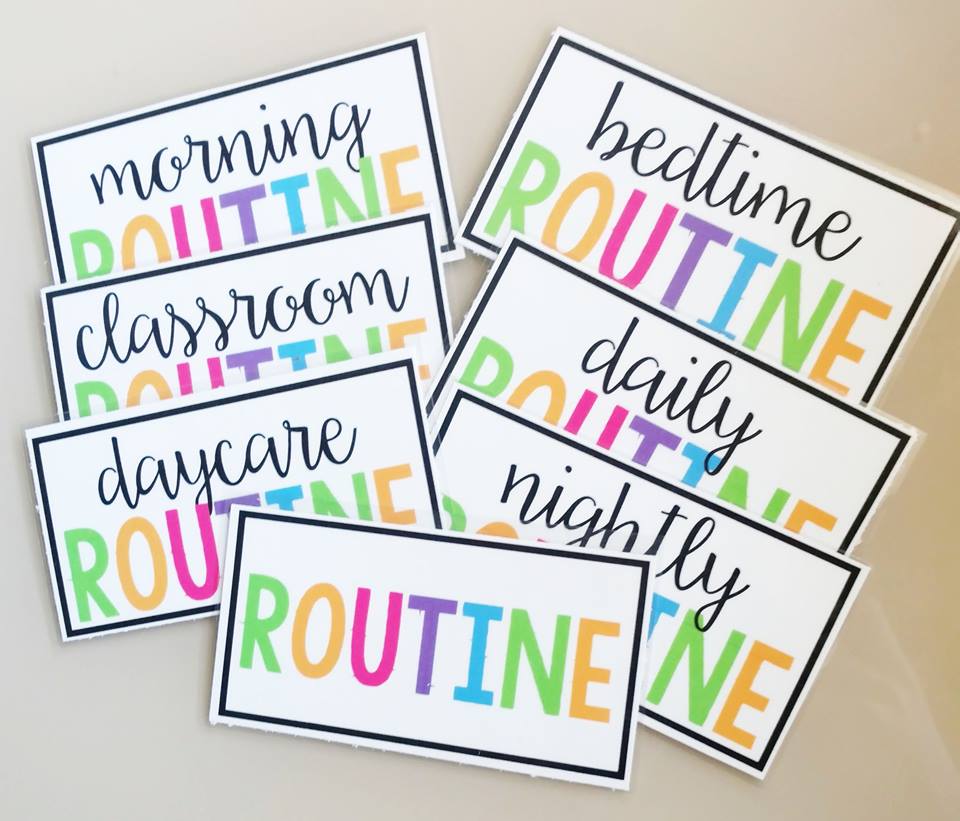 morning
ROUTINE
classroom
ROUTINE
daycare
ROUTINE
ROUTINE
bedtime
ROUTINE
daily
ROUTINE
nightly
ROUTINE